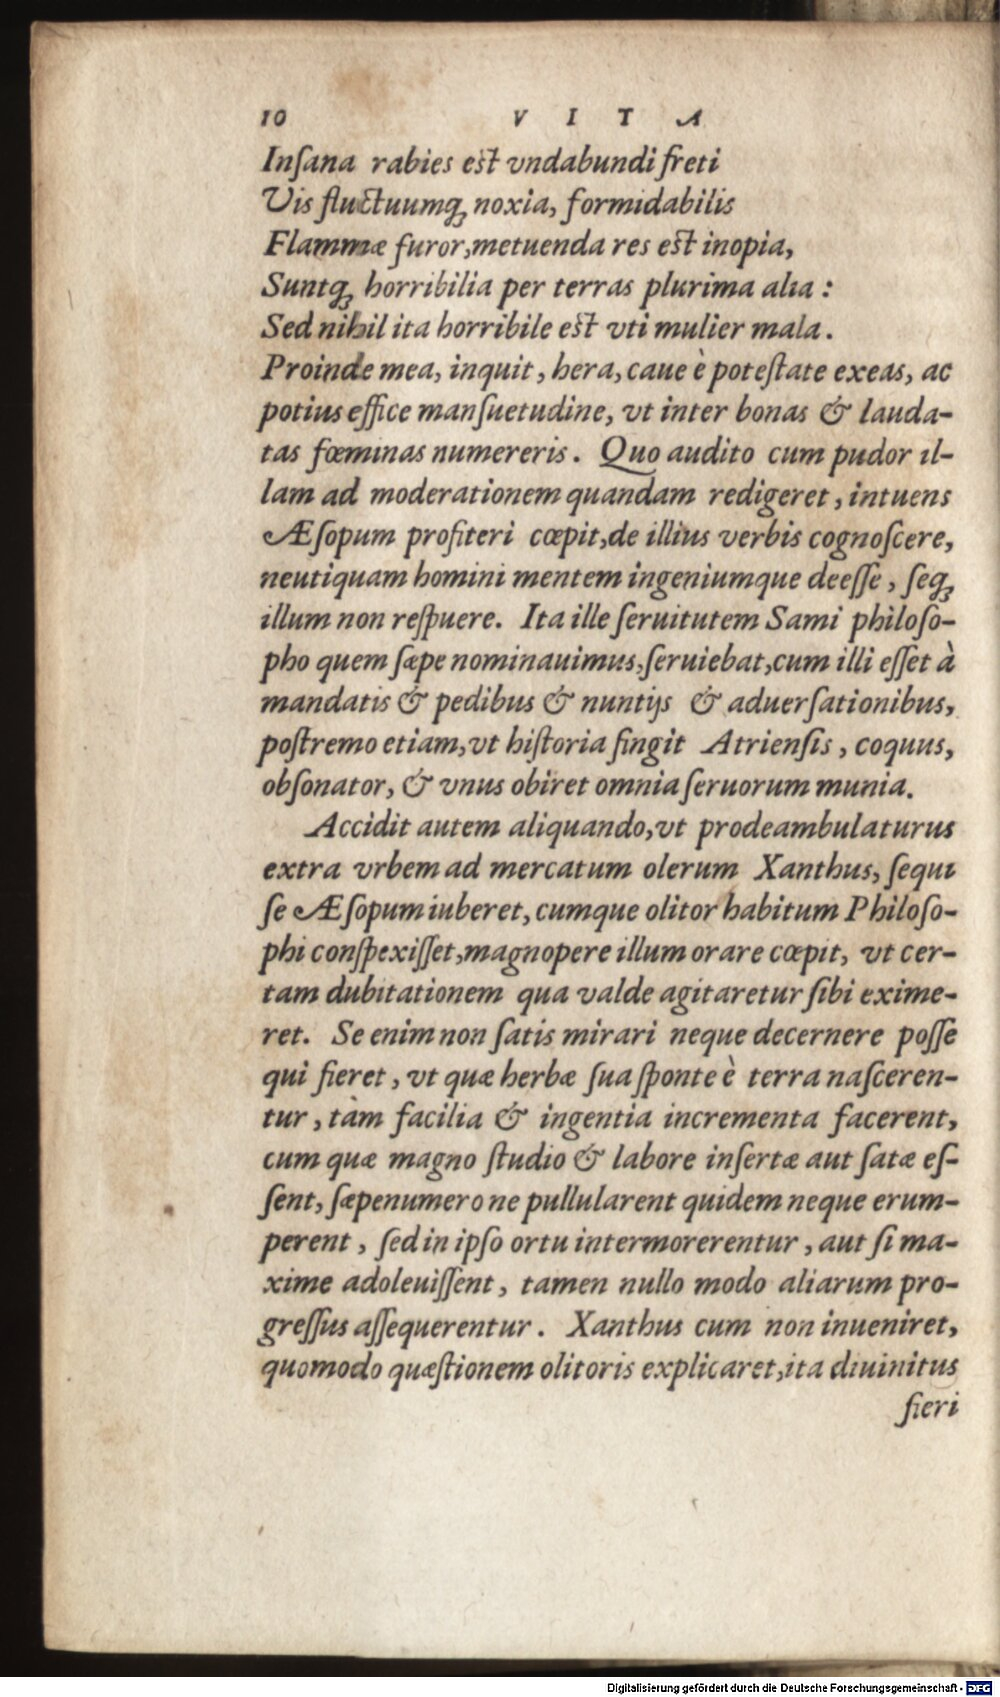 10 VITA
Inſana rabies eſt vndabundi freti
Vis fluctuumq́ noxia, formidabilis
Flammæ furor, metuenda res eſt inopia,
Suntq́ horribilia per terras plurima alia :
Sed nihil ita horribile eſt vti mulier mala.
Proinde mea, inquit, hera, caue è poteſtate exeas, ac
potius effice manſuetudine, vt inter bonas & lauda-
tas fœminas numereris. Quo audito cum pudor il-
lam ad moderationem quandam redigeret, intuens
Æſopum profiteri cœpit, de illius verbis cognoſcere,
neutiquam homini mentem ingeniumque deeſſe, ſeq́
illum non reſpuere. Ita ille ſeruitutem Sami philoſo-
pho quem ſæpe nominauimus, ſeruiebat, cum illi eſſet à
mandatis & pedibus & nuntijs & aduerſationibus,
poſtremo etiam, vt hiſtoria fingit Atrienſis, coquus,
obſonator, & vnus obiret omnia ſeruorum munia.
Accidit autem aliquando, vt prodeambulaturus
extra vrbem ad mercatum olerum Xanthus, ſequi
ſe Æſopum iuberet, cumque olitor habitum Philoſo-
phi conſpexiſſet, magnopere illum orare cœpit, vt cer-
tam dubitationem qua valde agitaretur ſibi exime-
ret. Se enim non ſatis mirari neque decernere poſſe
qui fieret, vt quæ herbæ ſua ſponte è terra naſceren-
tur, tàm facilia & ingentia incrementa facerent,
cum quæ magno ſtudio & labore inſertæ aut ſatæ eſ-
ſent, ſæpenumero ne pullularent quidem neque erum-
perent, ſed in ipſo ortu intermorerentur, aut ſi ma-
xime adoleuiſſent, tamen nullo modo aliarum pro-
greſſus aſſequerentur. Xanthus cum non inueniret,
quomodo quæſtionem olitoris explicaret, ita diuinitus
fieri
Digitalisierung gefördert durch die Deutsche Forschungsgemeinschaft - DFG